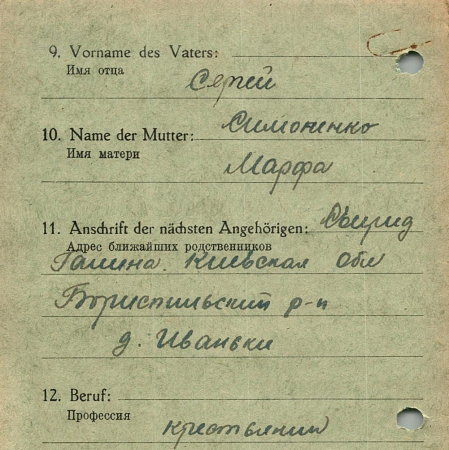 9. Vorname des Vaters:
Имя отца
Сергей
10. Name der Mutter: Симоненко
Имя матери
Марфа
11. Anschrift der nächsten Angehörigen: Свирид
Адрес ближайших родственников
Галина. Киевская обл
Бориспильский р-н
д. Иваньки
12. Beruf:
Профессия
крестьянин